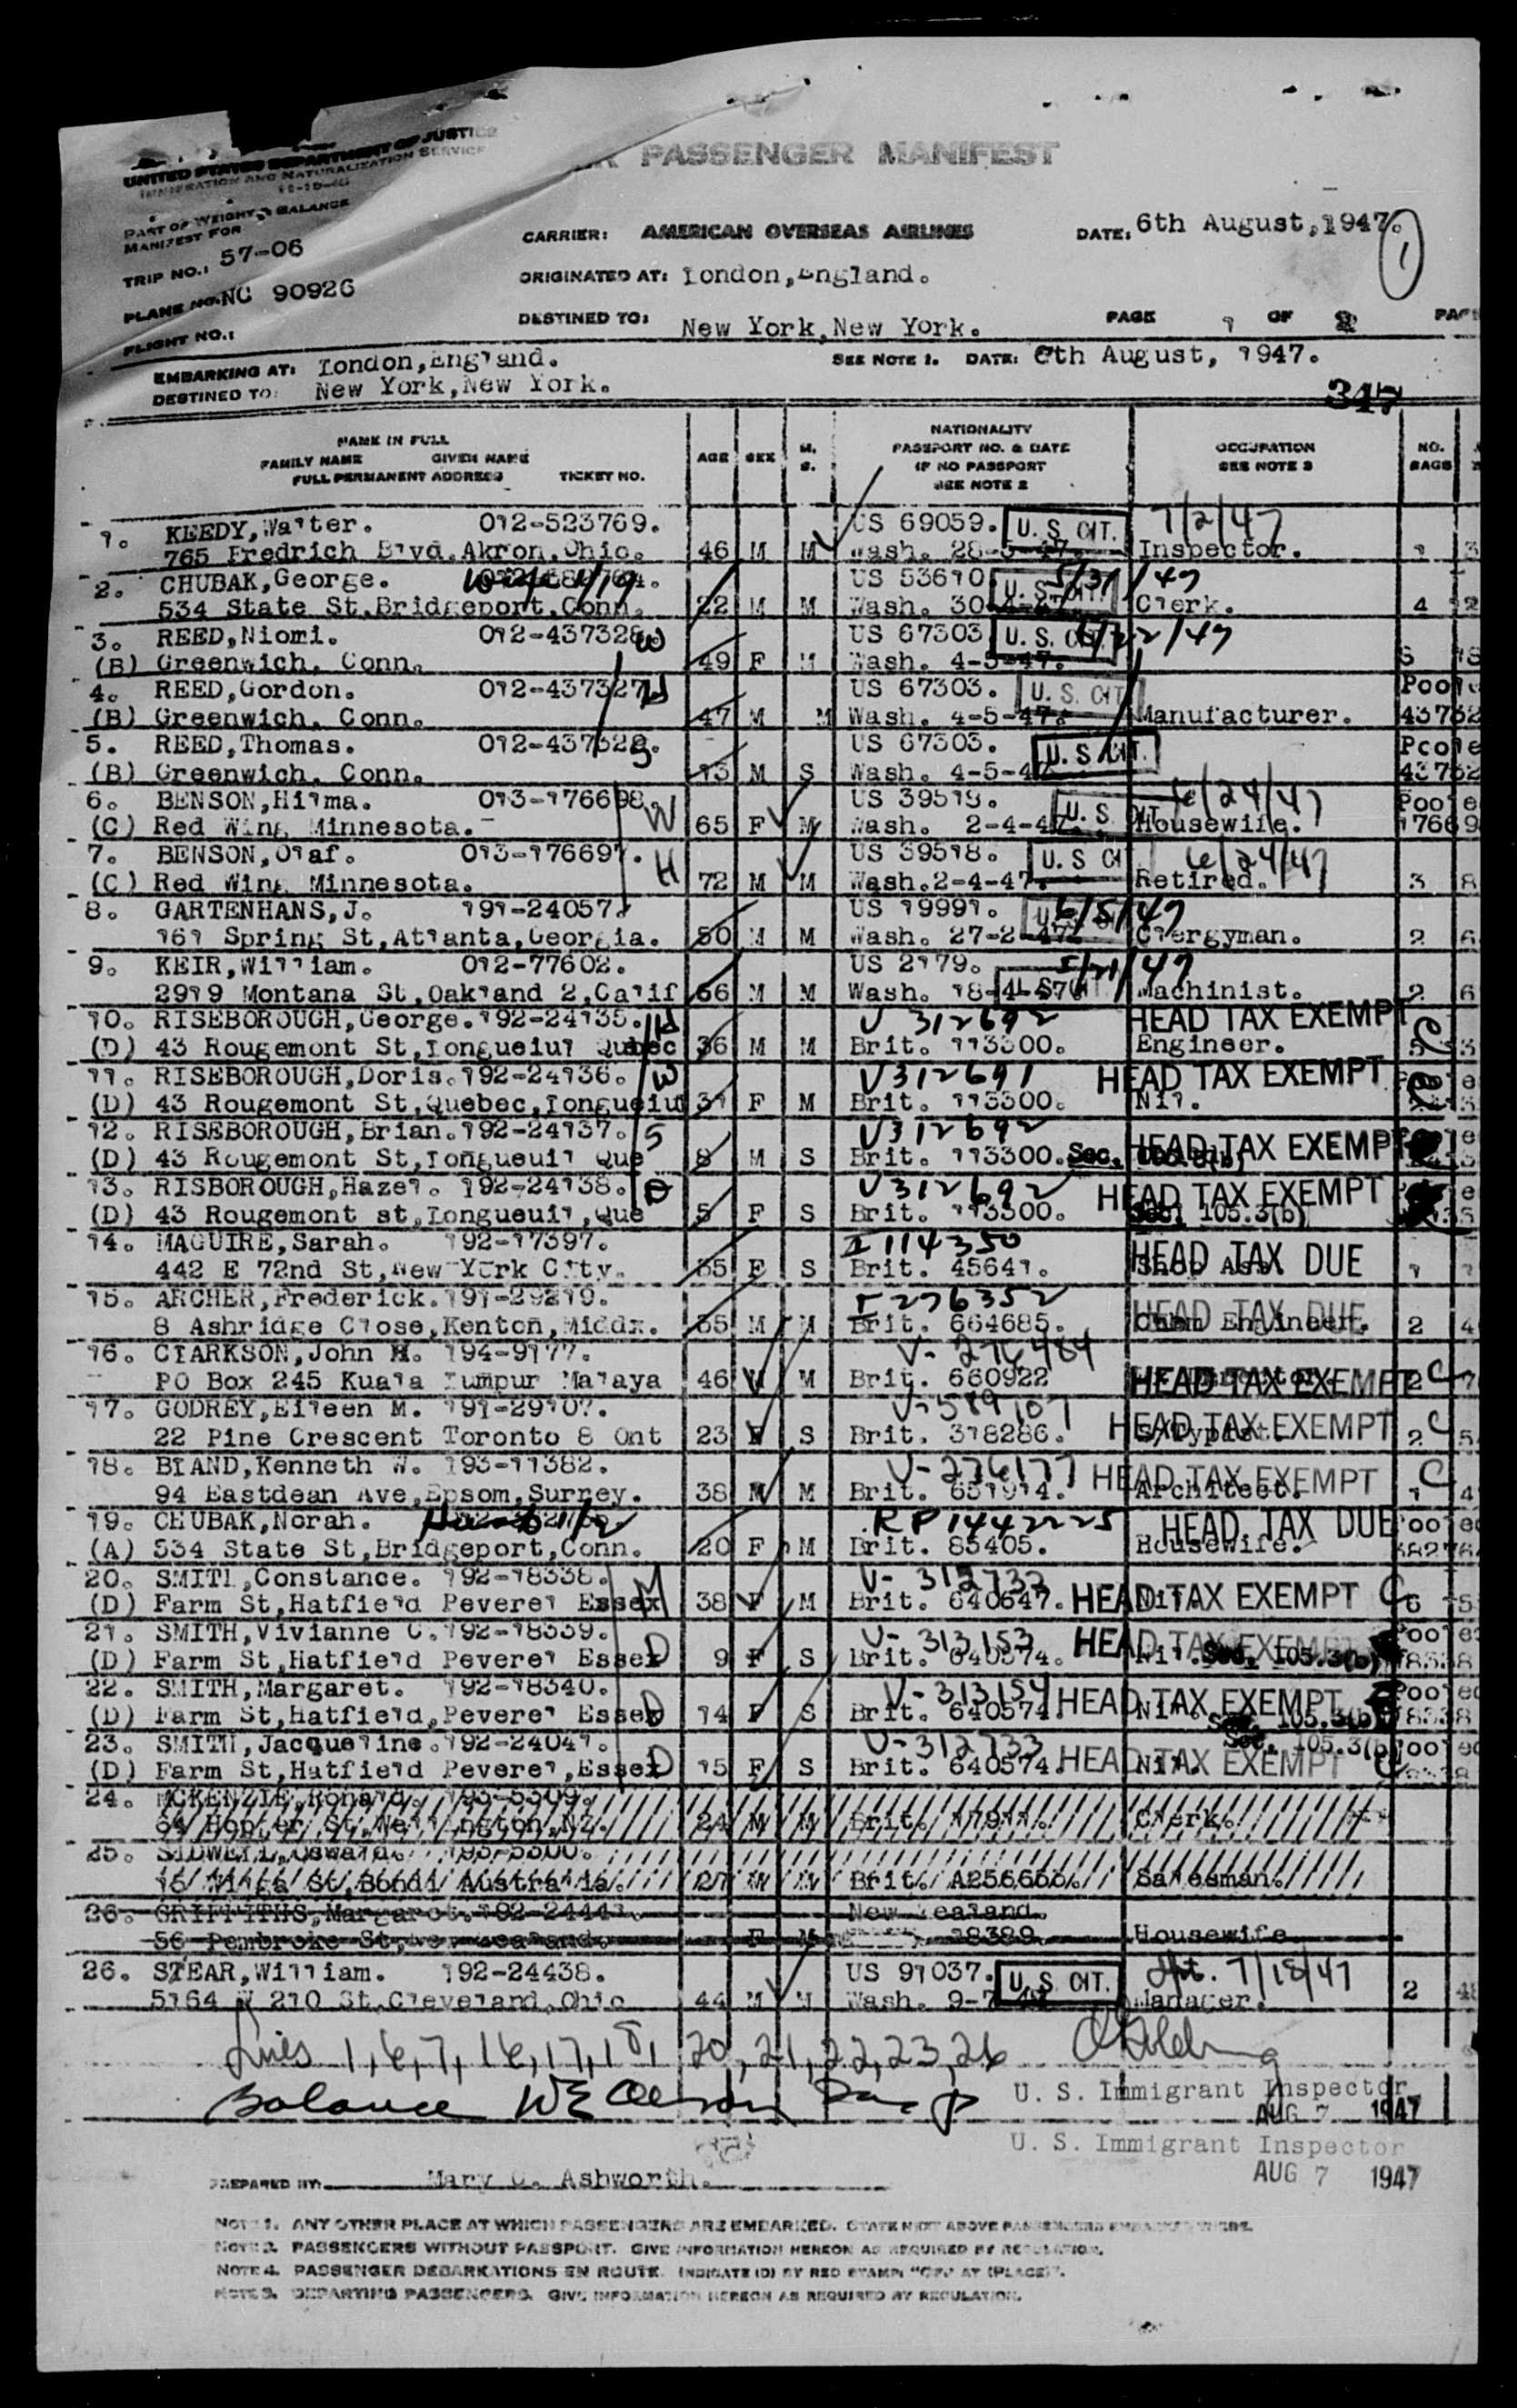 UNITED STATES DEPARTMENT OF JUSTICE
IMMIGRATION AND NATURALIZATION SERVICE
PASSENGER MANIFEST
PART OF WEIGHT & BALANCE
MANIFEST FOR
TRIP NO.: 57-06
PLANE NO. NC 90926
FLIGHT NO.:
CARRIER: AMERICAN OVERSEAS AIRLINES
DATE: 6th August, 1947.
1
ORIGINATED AT: London, England.
DESTINED TO: New York, New York.
PAGE 1 OF 2
EMBARKING AT: London, England.
SEE NOTE 1. DATE: 6th August, 1947.
DESTINED TO: New York, New York.
347
NAME IN FULL
FAMILY NAME GIVEN NAME
FULL PERMANENT ADDRESS TICKET NO.
AGE SEX M. S.
NATIONALITY
PASSPORT NO. & DATE
IF NO PASSPORT
SEE NOTE 2
OCCUPATION
SEE NOTE 3
NO. BAGS
1. KEEDY, Walter. 012-523769. US 69059. U. S. CIT. 7/2/47
765 Fredrich Blvd. Akron, Ohio. 46 M M Wash. Inspector. 1 3
2. CHUBAK, George. US 53610 U. S. CIT. 5/31/47
534 State St, Bridgeport, Conn. 22 M M Wash. Clerk. 4 12
3. REED, Niomi. 012-437328 W US 67303 U. S. CIT.
(B) Greenwich, Conn. 49 F M Wash. 4-5-47.
4. REED, Gordon. 012-437327 US 67303. U. S. CIT
(B) Greenwich, Conn. 47 M M Wash. 4-5-47. Manufacturer.
5. REED, Thomas. 012-437329. S US 67303. U. S. CIT.
(B) Greenwich, Conn. 13 M S Wash. 4-5-47
6. BENSON, Hilma. 013-176698. W US 39519. U. S. CIT 6/24/47
(C) Red Wing Minnesota. 65 F M Wash. 2-4-47. Housewife.
7. BENSON, Olaf. 013-176697. H US 39518. U. S CI 6/24/47
(C) Red Wing Minnesota. 72 M M Wash. 2-4-47. Retired. 3 8
8. GARTENHANS, J. 191-24057. US 19991. 6/5/47
161 Spring St, Atlanta, Georgia. 50 M M Wash. 27-2-47. Clergyman. 2 6
9. KEIR, William. 012-77602. US 2179. 5/21/47
2919 Montana St, Oakland 2, Calif 66 M M Wash. Machinist. 2 6
10. RISEBOROUGH, George. 192-24135. H V 312692 HEAD TAX EXEMPT
(D) 43 Rougemont St, Longueiul Quebec 36 M M Brit. 113300. Engineer.
11. RISEBOROUGH, Doris. 192-24136. W V312691 HEAD TAX EXEMPT
(D) 43 Rougemont St, Quebec, Longueiul 31 F M Brit. 113300. Nil.
12. RISEBOROUGH, Brian. 192-24137. S V312692 HEAD TAX EXEMPT
(D) 43 Rougemont St, Longueuil Que 8 M S Brit. 113300. Sec.
13. RISBOROUGH, Hazel. 192-24138. D V312692 HEAD TAX EXEMPT
(D) 43 Rougemont st, Longueuil, Que 5 F S Brit. 113300. Sec. 105.3(b)
14. MAGUIRE, Sarah. 192-17397. I 114350 HEAD TAX DUE
442 E 72nd St, New York City. F S Brit. 45641. 1
15. ARCHER, Frederick. 191-29219. 276352 HEAD TAX DUE
8 Ashridge Close, Kenton, Middx. M M Brit. 664685. Chem Engineer. 2 4
16. CLARKSON, John H. 194-9177. V- 276484 HEAD TAX EXEMPT
PO Box 245 Kuala Lumpur Malaya 46 M M Brit. 660922 2 C 7
17. GODREY, Eileen M. 191-29107. HEAD TAX EXEMPT
22 Pine Crescent Toronto 8 Ont 23 F S Brit. 318286. 2 C 5
18. BLAND, Kenneth W. 193-11382. V-276177 HEAD TAX EXEMPT
94 Eastdean Ave, Epsom, Surrey. 38 M M Brit. 651914. Architect. 1 C 4
19. CHUBAK, Norah. RP1442225 HEAD TAX DUE
(A) 534 State St, Bridgeport, Conn. 20 F M Brit. 85405. Housewife.
20. SMITH, Constance. 192-18338. M V- 312733 HEAD TAX EXEMPT
(D) Farm St, Hatfield Peverel Essex 38 F M Brit. 640647. Nil. C 6
21. SMITH, Vivianne C. 192-18339. V- 313153 HEAD TAX EXEMPT
(D) Farm St, Hatfield Peverel Essex D 9 F S Brit. 640574. Nil. Sec. 105.3(b)
22. SMITH, Margaret. 192-18340. V- 313154 HEAD TAX EXEMPT
(D) Farm St, Hatfield, Peverel Essex D 14 F S Brit. 640574. Nil. Sec. 105.3(b)
23. SMITH, Jacqueline. 192-24041. V-312733 Sec. 105.3(b)
(D) Farm St, Hatfield Peverel, Essex D 15 F S Brit. 640574. HEAD TAX EXEMPT Nil.
24. MCKENZIE, Ronald. 193-5309.
St, Wellington, NZ. 24 M M Brit. 17911. Clerk.
25. SIDWELL, Oswald. 193-5300.
St, Bondi Australia. 27 M M Brit. A256666. Salesman.
26. GRIFFITHS, Margaret. 192-24441. New Zealand.
56 Pembroke St, F M 18389 Housewife
26. STEAR, William. 192-24438. US 91037. U. S CIT. 7/18/47
5164 W 210 St, Cleveland, Ohio 44 M M Wash. Manager. 2
Lines 1, 6, 7, 16, 17, 18, 20, 21, 22, 23, 26
Balance
U. S. Immigrant Inspector
AUG 7 1947
U. S. Immigrant Inspector
AUG 7 1947
PREPARED BY: Mary C. Ashworth.
NOTE 1. ANY OTHER PLACE AT WHICH PASSENGERS ARE EMBARKED.
NOTE 2. PASSENGERS WITHOUT PASSPORT. GIVE INFORMATION HEREON AS REQUIRED BY REGULATION.
NOTE 4. PASSENGER DEBARKATIONS EN ROUTE. INDICATE (D) BY RED STAMP: "OFF AT (PLACE)".
NOTE 5. DEPARTING PASSENGERS. GIVE INFORMATION HEREON AS REQUIRED BY REGULATION.